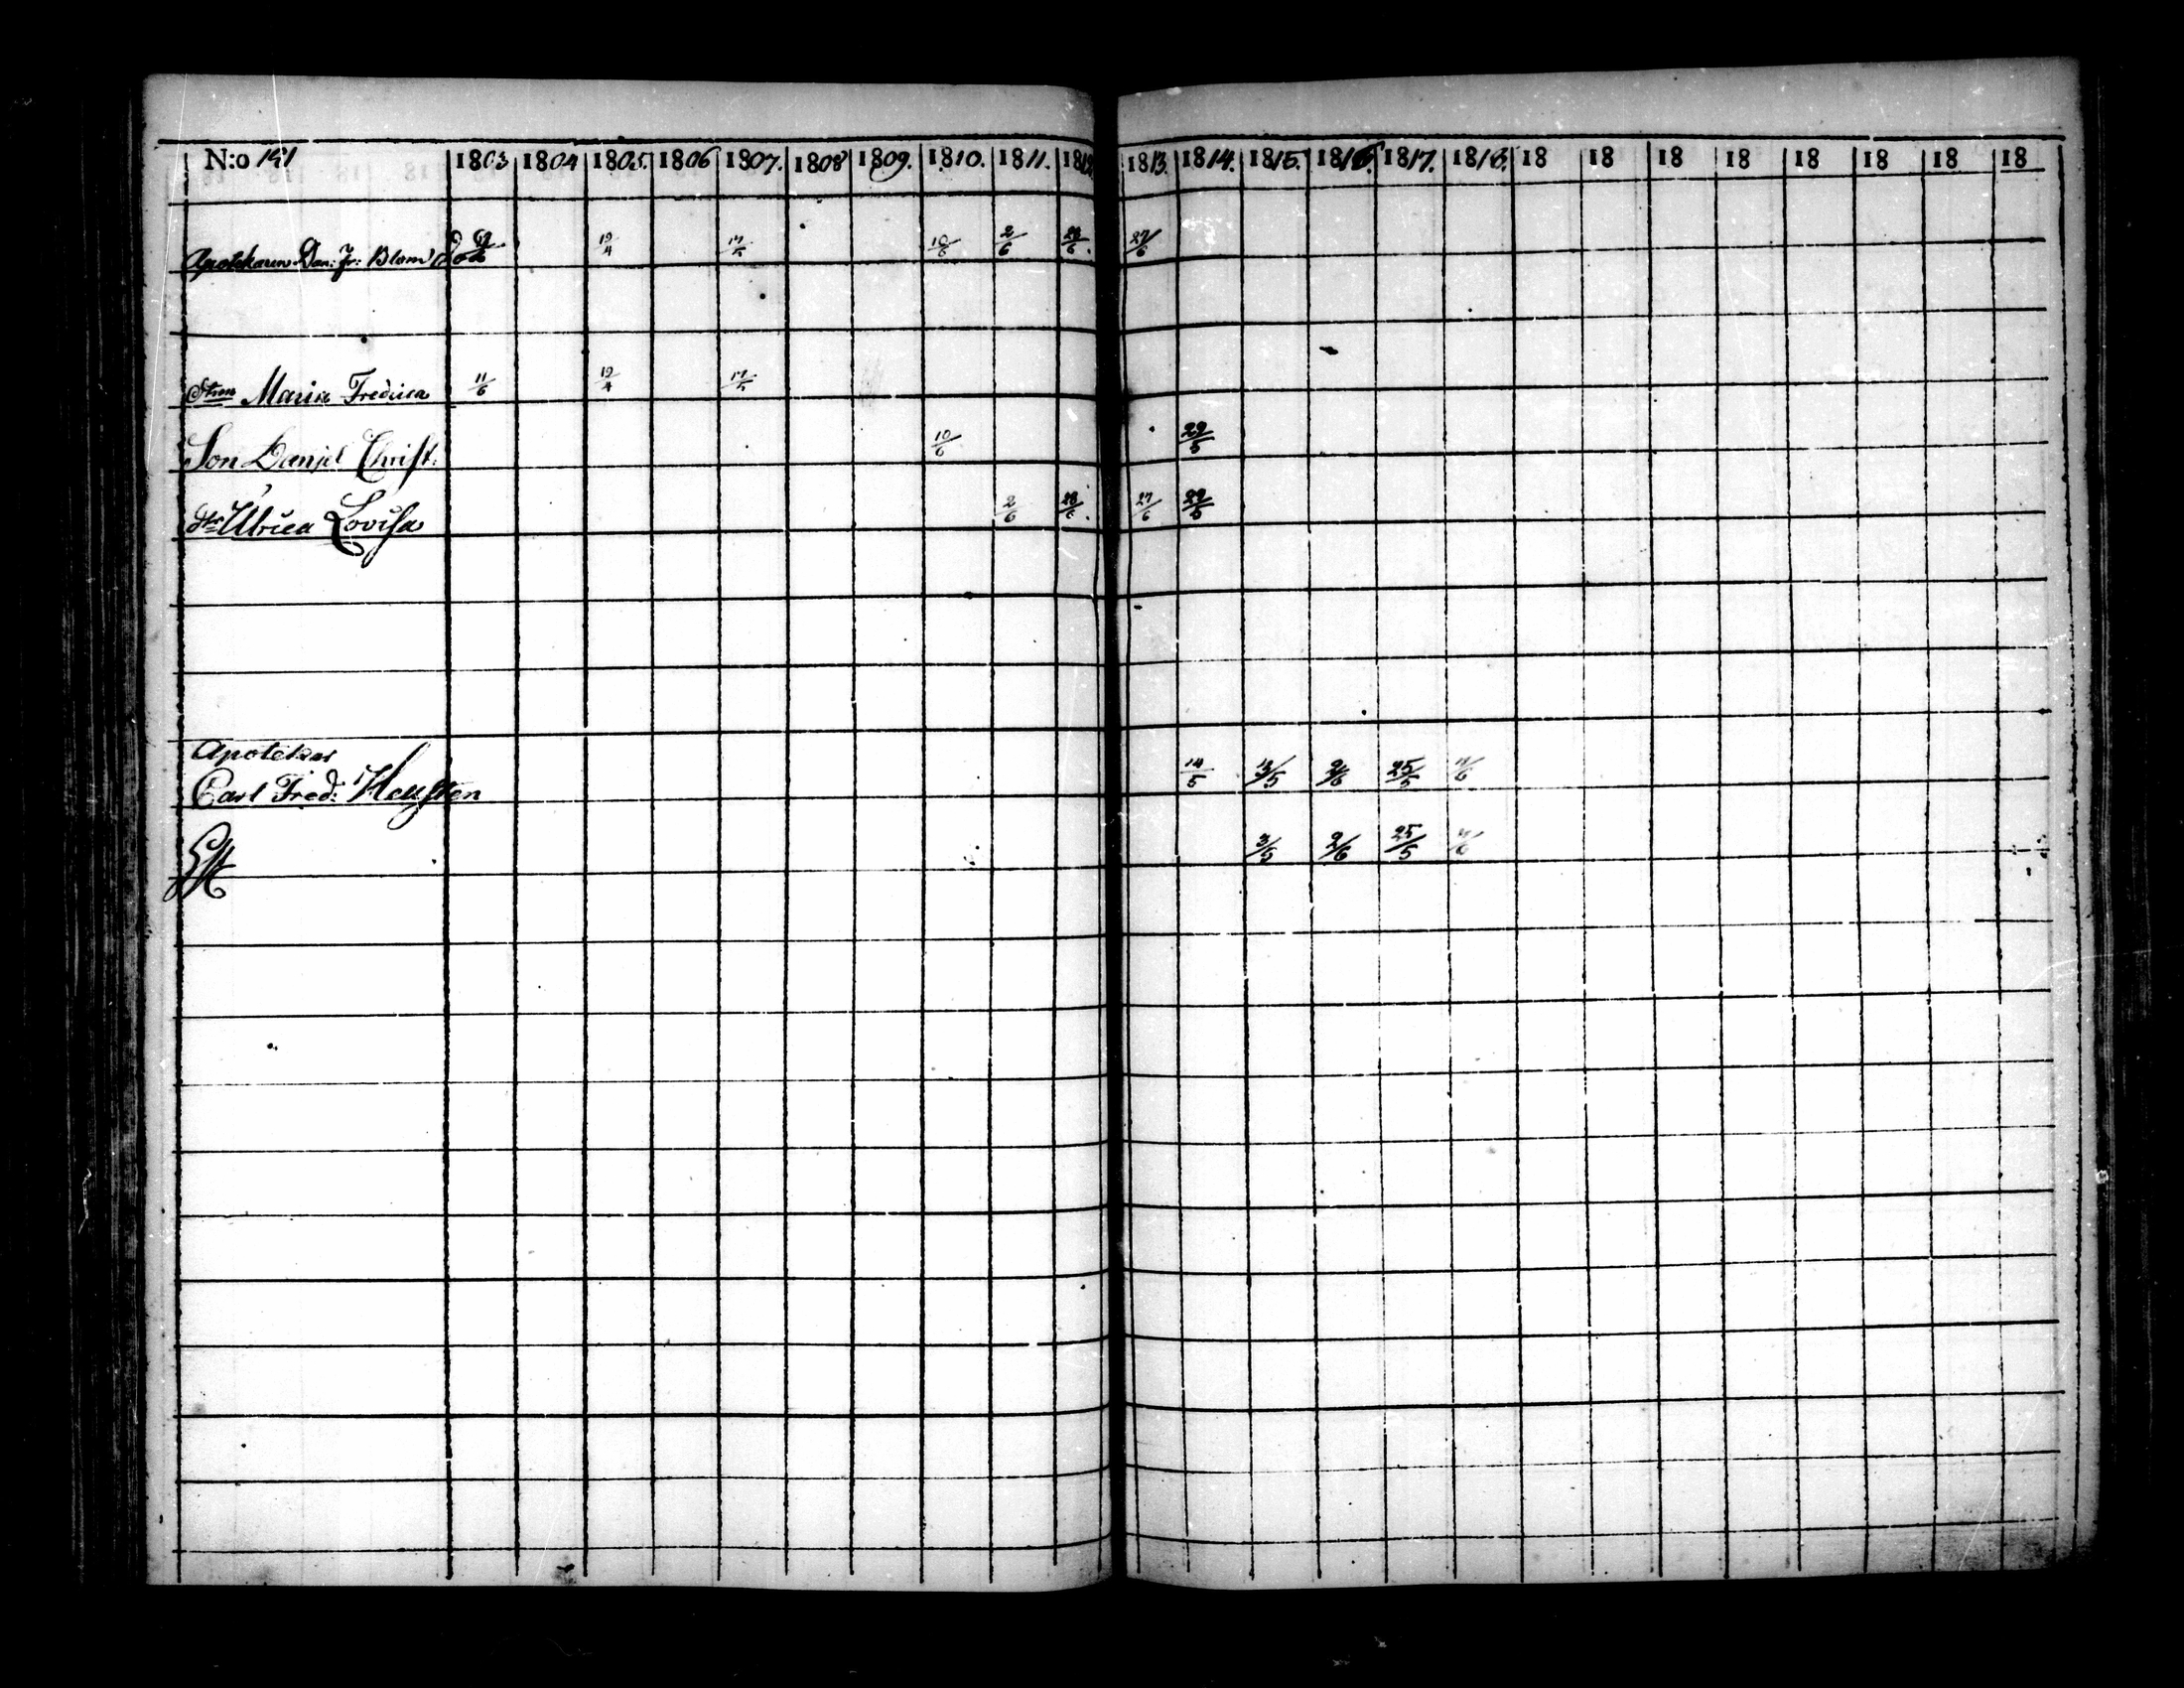 N:o 141 1803 1804 1805. 1806 1807. 1808 1809. 1810. 1811. 1812. 1813. 1814. 1815. 1816. 1817. 1818. 18 18 18 18 18 18 18 18
Apotekaren Dan: Fr: Blom 19/4 10/6 2/6 28/6. 27/6
Maria Fredrica 11/6 19/4
Son Daniel Christ: 10/6 29/5
Ulrica Lovisa 2/6 28/6. 27/6 29/5
Apotekar
Carl Fred: 14/5 13/5 2/6 25/5
3/5 2/6 25/5